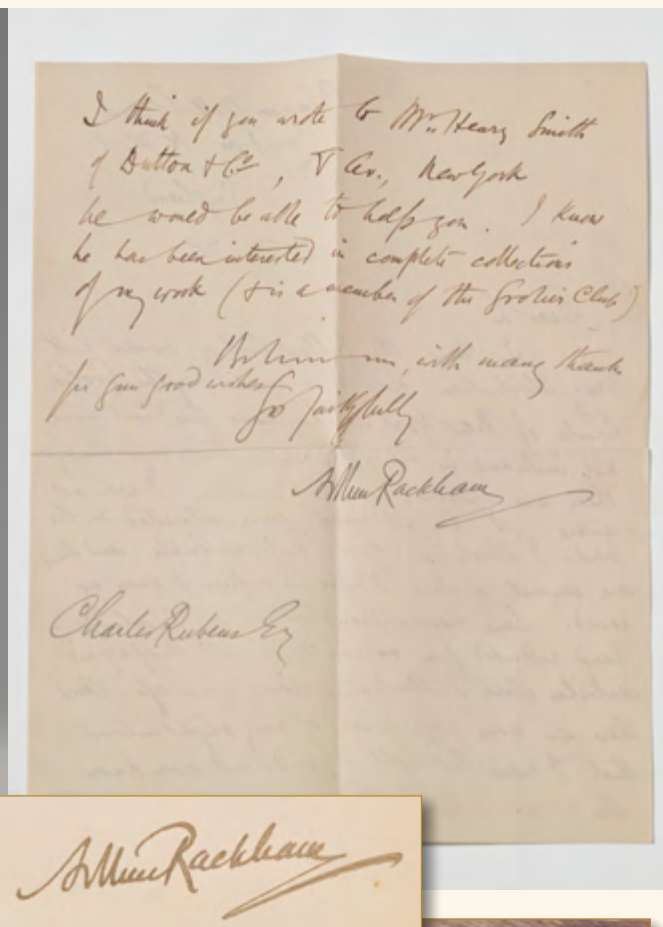 I think if you wrote to Mr. Henry Smith
of Dutton & Co, V Av., New York
he would be able to help you. I know
he has been interested in complete collections
of my work (& is a member of the Grolier Club!)
with many thanks
for your good wishes
Yrs faithfully
Arthur Rackham
Charles Rubens Esq
Arthur Rackham